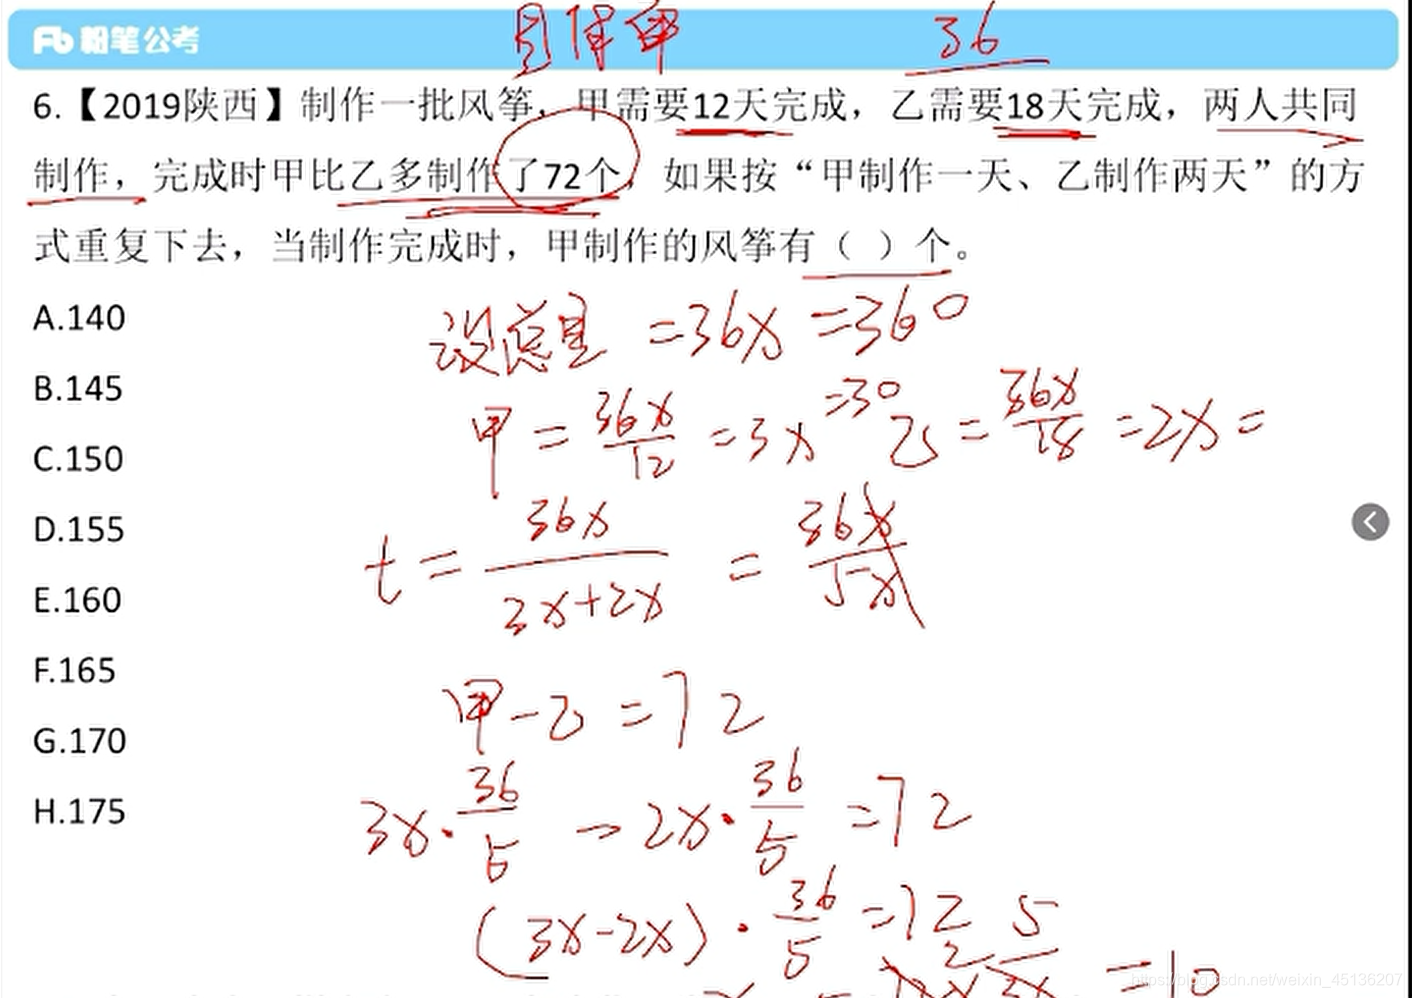 粉笔公考
具体甲 36
6.【2019陕西】制作一批风筝，甲需要12天完成，乙需要18天完成，两人共同
制作，完成时甲比乙多制作了72个，如果按“甲制作一天、乙制作两天”的方
式重复下去，当制作完成时，甲制作的风筝有（ ）个。
A.140
设总量 =36x =360
B.145
甲 = 36x/12 = 3x =30 乙 = 36x/18 = 2x =
C.150
D.155
t = 36x/3x+2x = 36x/5x
E.160
F.165
甲-乙 =72
G.170
H.175
3x·36/5 - 2x·36/5 =72
(3x-2x)·36/5 =72
5
=10
https://blog.csdn.net/weixin_45136207